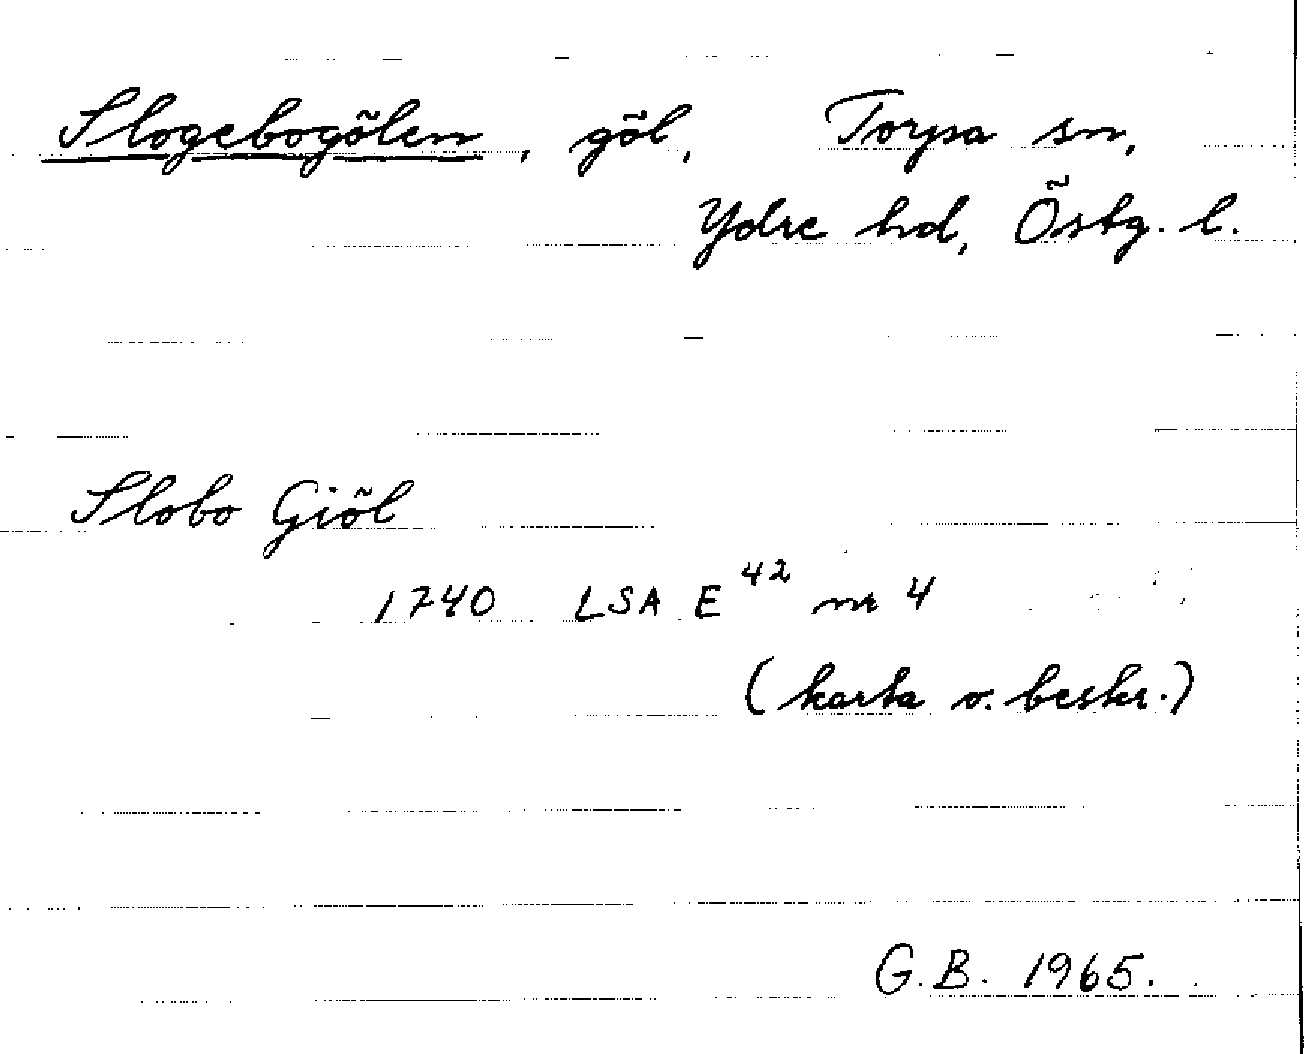 Slogebogölen, göl, Torpa sn,
Ydre hd, Östg. l.
Slobo Giöl
1740 LSA E 42 nr 4
(karta o. beskr.)
G.B. 1965.